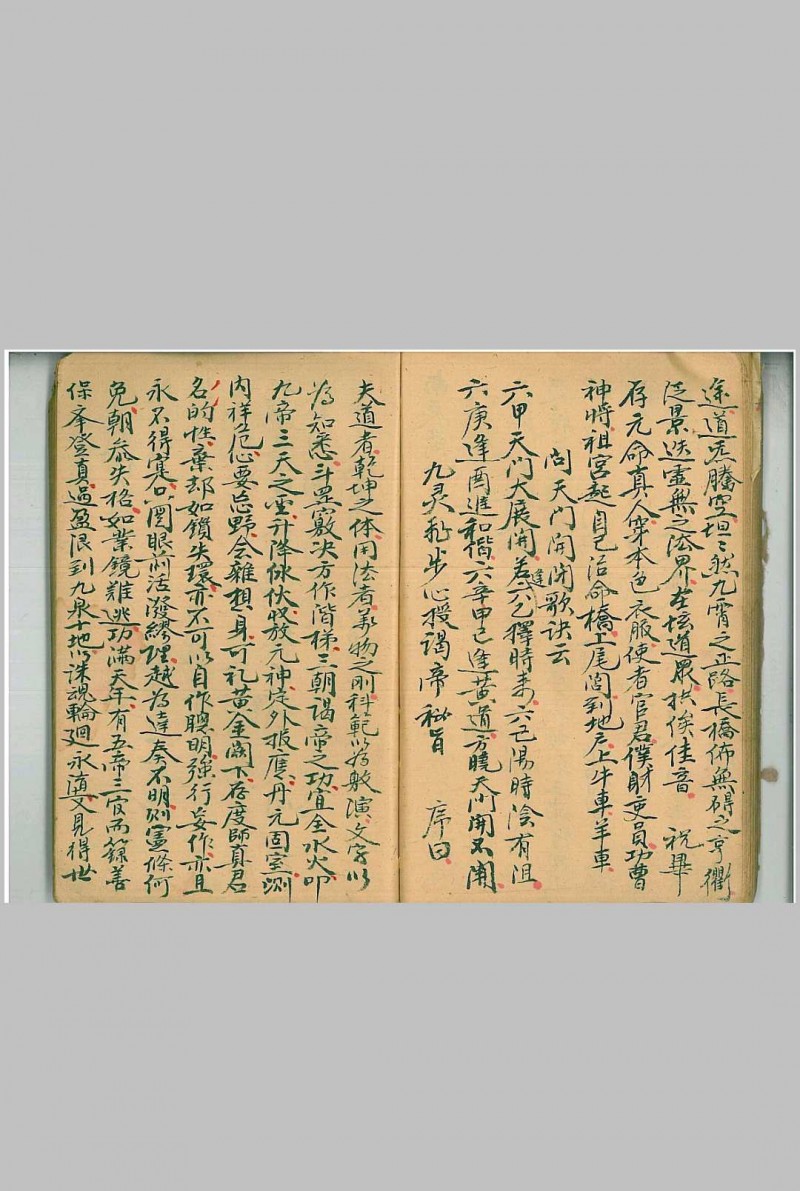 途道炁騰空坦〻然九霄之正路長橋佈無碍之亨衢
泛景迭虛無之法界在坛道眾拱俟佳音 祝畢
存元命真人穿本色衣服使者官君僕財吏員功曹
神將祖宮起自己治命橋上尾閭到地户上牛車羊車
問天門開閉歌訣云
六甲天門大展開若逢六乙擇時来六己湯時陰有阻
六庚逢酉進和楷六辛甲己逢黄道方曉天门開不開
九灵飛步心授謁帝秘旨 序曰
夫道者乾坤之体用法者萬物之刚科範以為敷演文字以
為知悉斗罡竅决方作階梯三朝謁帝之功宜全水火叩
九帝三天之聖升降俶伏收放元神定外报應丹元固室测
内祥危心要忘野念雜想身可礼黄金阙下存度師真君
名的性棄却如鎖失環亦不可以自作聰明強行妄作亦且
永不得寔只閉眼前活潑繆理越為達奏不明则憲條何
免朝参失格如業鏡難逃功满天年有五帝三官而籙善
保奉登真過盈限到九泉十地以誅魂輪廻永堕又見得世